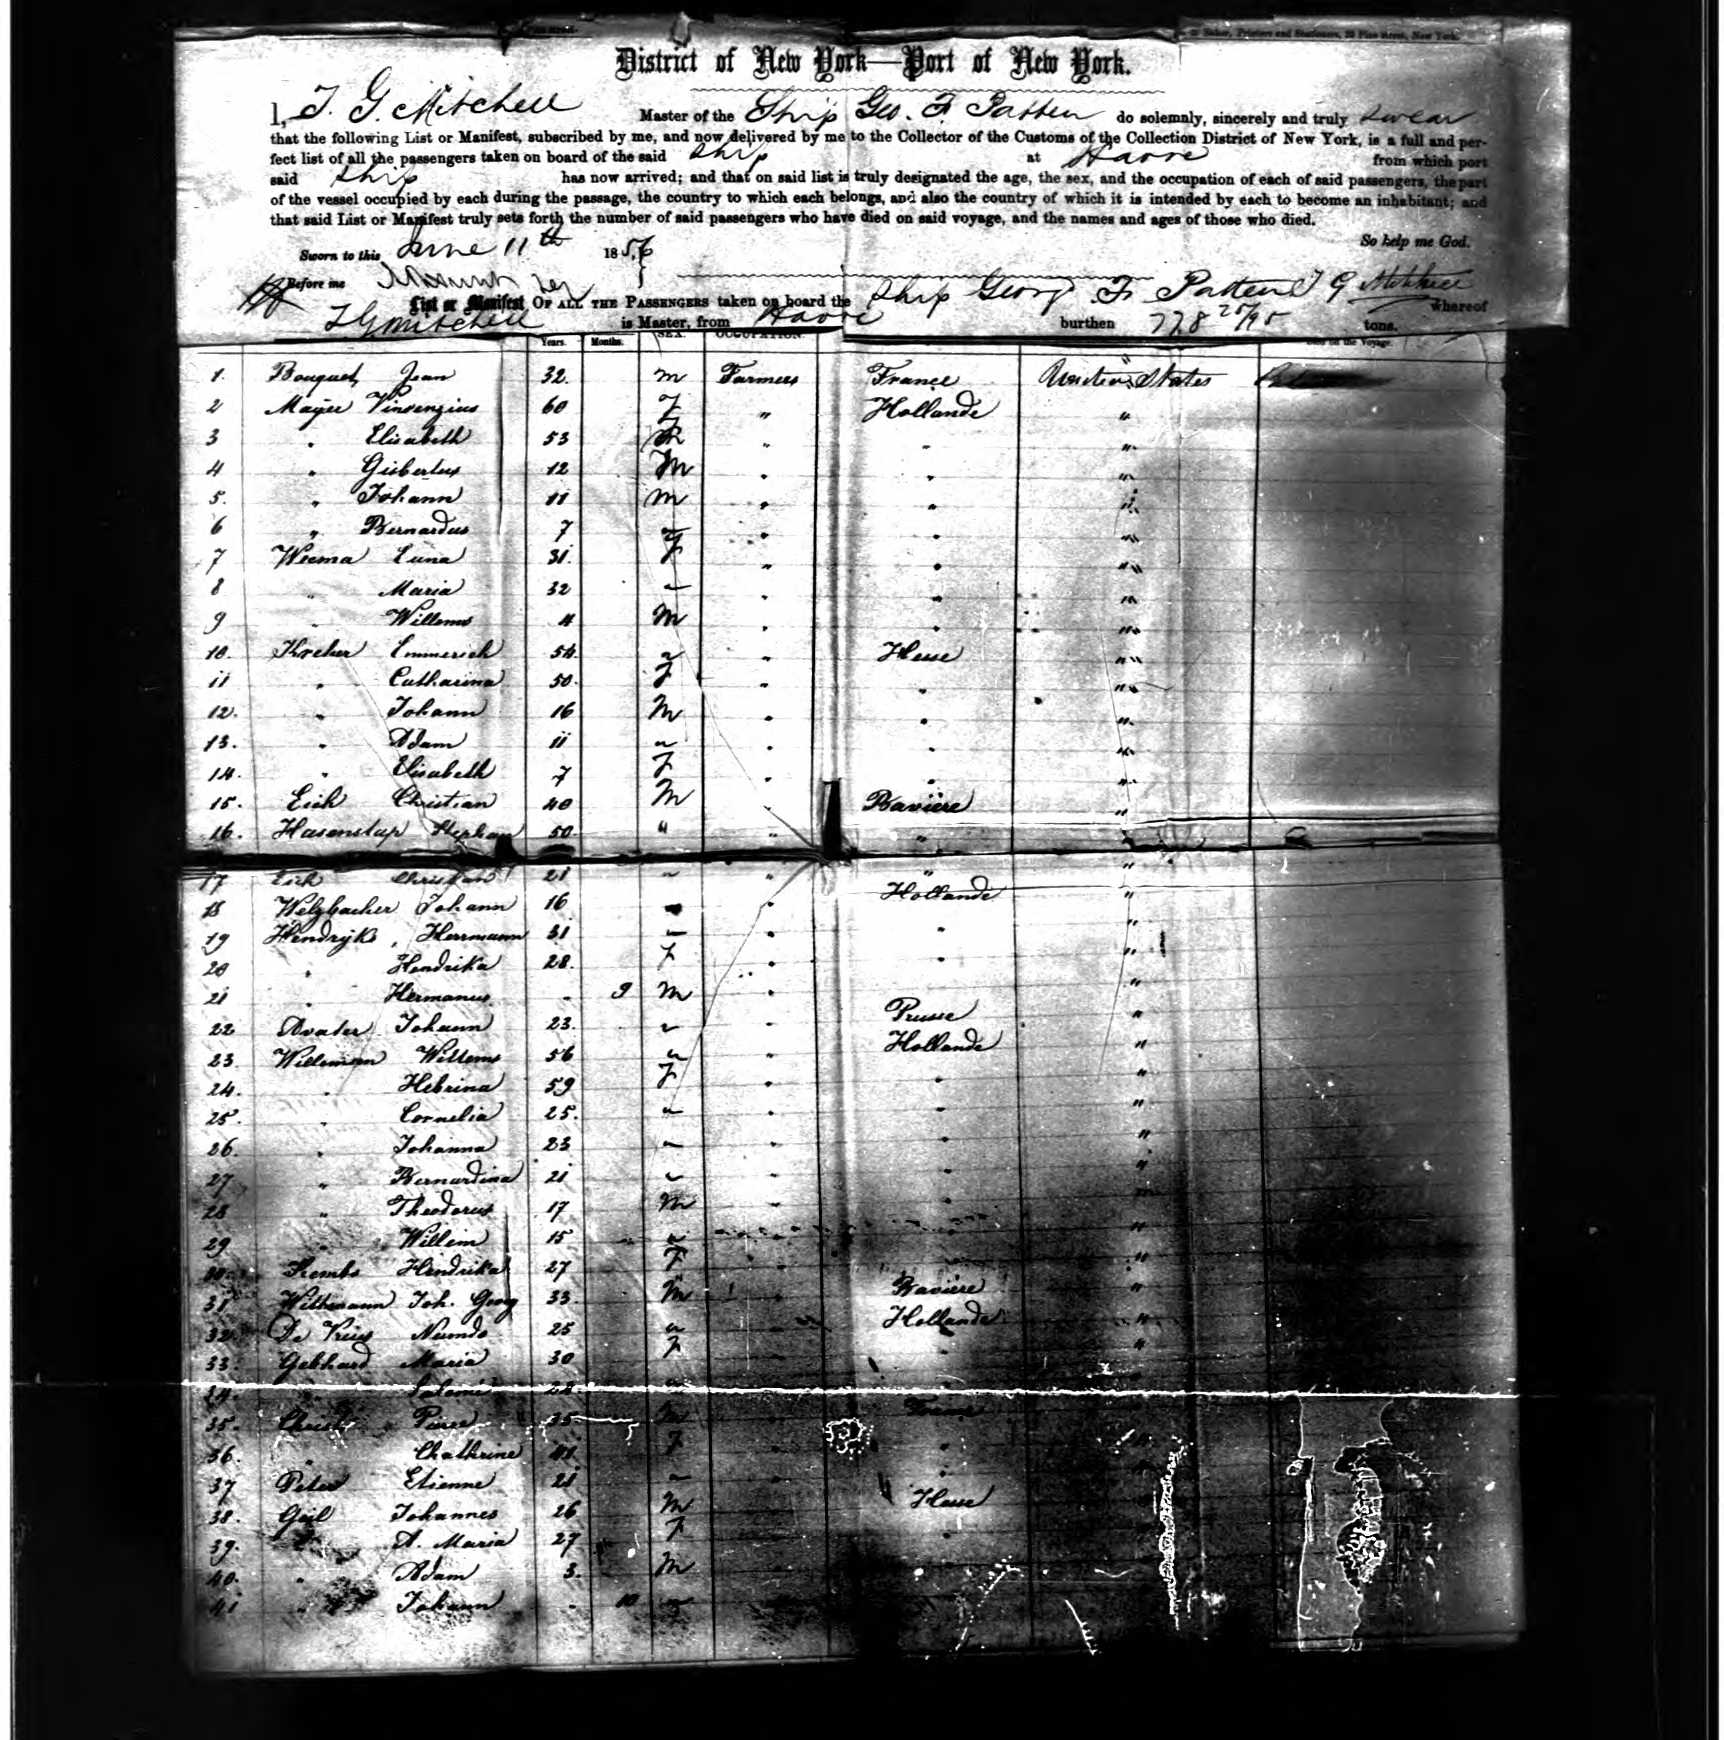 Baker, Printers and Stationers, 25 Pine street, New York.
District of New York—Port of New York.
I, T. G. Mitchell Master of the Ship Geo. F. Patten do solemnly, sincerely and truly swear
that the following List or Manifest, subscribed by me, and now delivered by me to the Collector of the Customs of the Collection District of New York, is a full and per-
fect list of all the passengers taken on board of the said Ship at Havre from which port
said Ship has now arrived; and that on said list is truly designated the age, the sex, and the occupation of each of said passengers, the part
of the vessel occupied by each during the passage, the country to which each belongs, and also the country of which it is intended by each to become an inhabitant; and
that said List or Manifest truly sets forth the number of said passengers who have died on said voyage, and the names and ages of those who died.
So help me God.
Sworn to this June 11th 1856
Before me
T G Mitchell
List or Manifest OF ALL THE PASSENGERS taken on board the Ship George F. Patten whereof
T G Mitchell is Master, from Havre burthen 778 tons.
Years. Months. SEX. OCCUPATION. Died on the Voyage.
1. Bouquet, Jean 32. M Farmers France United States
2 Mayer Vinsenzius 60 F " Hollande "
3 " Elisabeth 53 " " "
4 " Gisbertus 12 M " " "
5. " Johann 11 M " " "
6 " Bernardus 7 " " " "
7 Weema Luna 31. F " " "
8 " Maria 32 " " " "
9 " Willems 4 M " " "
10. Kreher Emmerich 54. " " Hesse "
11 " Catharina 50. F " " "
12. " Johann 16 M " " "
13. " Adam 11 " " " "
14. " Elisabeth 7 F " " "
15. Eich Christian 40 M " Baviere "
16. Hasenstap Stephan 50. " " " "
17 Eich Christian 21 " " " "
18 Welzbacher Johann 16 " Hollande "
19 Hendryks, Herrmann 31 " " " "
20 " Hendrika 28. F " " "
21 " Hermanus " 9 M " "
22 Avater Johann 23. " " Prusse "
23. Willemsen Willems 56 " " Hollande "
24. " Hebrina 59 F " " "
25. " Cornelia 25. " " " "
26. " Johanna 23 " " " "
27 " Bernardina 21 " " " "
28 " Theodorus 17 M " " "
29 " Willem 15 " "
30. Hendrika 27 F " "
31 Withmann Joh. Georg 33. M " Baviere "
32. De Vries 25 " " Hollande "
33. Gebhard Maria 30 F " " "
34. " Salomé 22. "
35. 25 M " France
36. " Chathrine 41 F " "
37 Peter Etienne 21 " "
38. Geil Johannes 26 M Hesse
39. " A. Maria 27 F "
40. " Adam 3. M
41 " Johann " 10 "